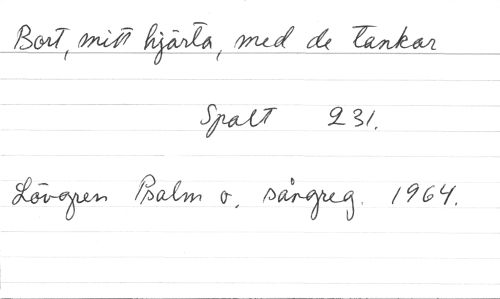 Bort, mitt hjärta, med de tankar
Spalt 231.
Lövgren Psalm o. sångreg. 1964.